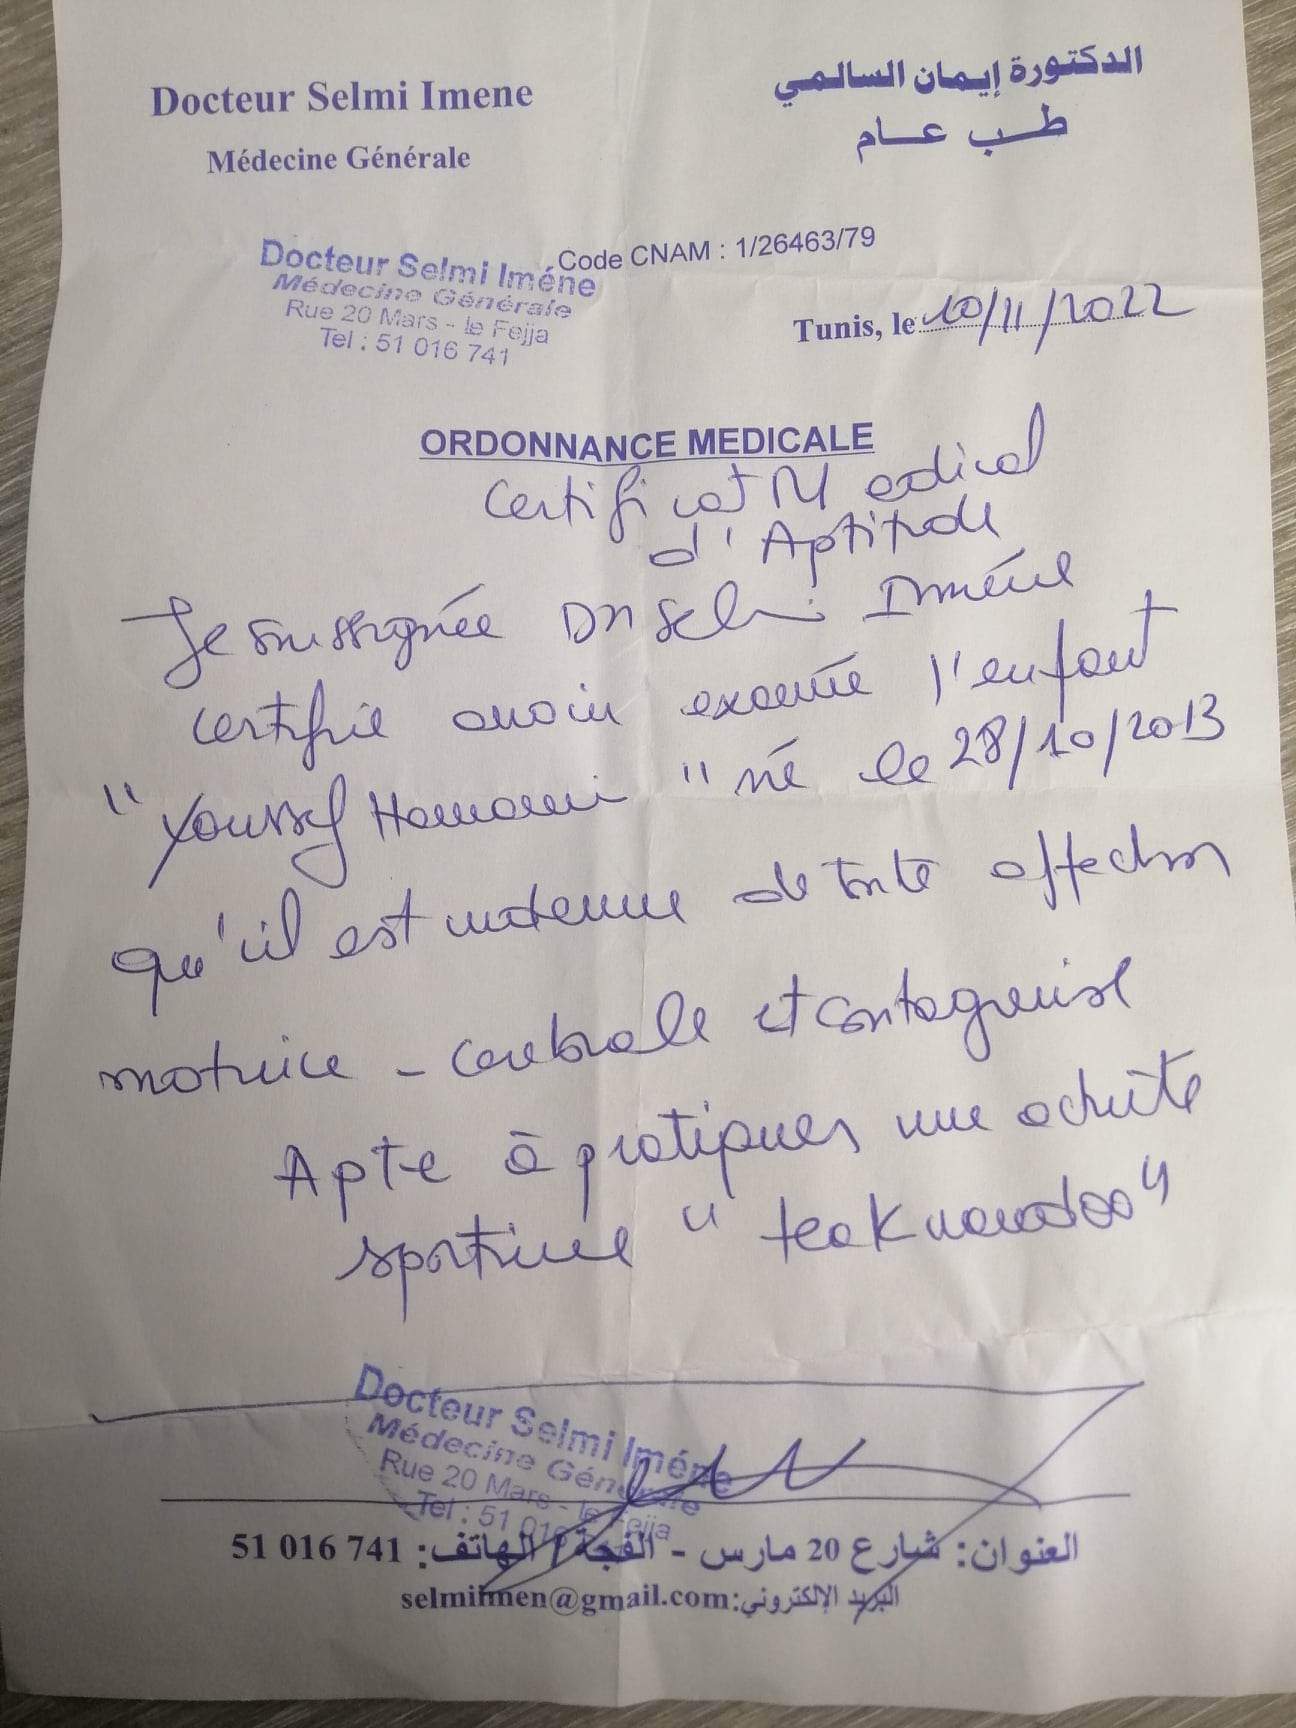 Docteur Selmi Imene
Médecine Générale
الدكتورة إيمان السالمي
طب عام
Docteur Selmi Iméne
Médecine Générale
Rue 20 Mars - le Fejja
Tel : 51 016 741
Code CNAM : 1/26463/79
Tunis, le 10/11/2022
ORDONNANCE MEDICALE
Certificat Medical
d'Aptitude
Je soussignée Dr Selmi Iméne
certifie avoir examiné l'enfant
"Youssef Hamami" né le 28/10/2013
qu'il est indemne de toute affection
motrice - cerebrale et contagieuse
Apte à pratiquer une activité
sportive "teakwondoo"
Docteur Selmi Iméne
Médecine Générale
Rue 20 Mars - le Fejja
Tel : 51 016
العنوان: شارع 20 مارس - الفجة / الهاتف: 741 016 51
البريد الإلكتروني: selmiimen@gmail.com